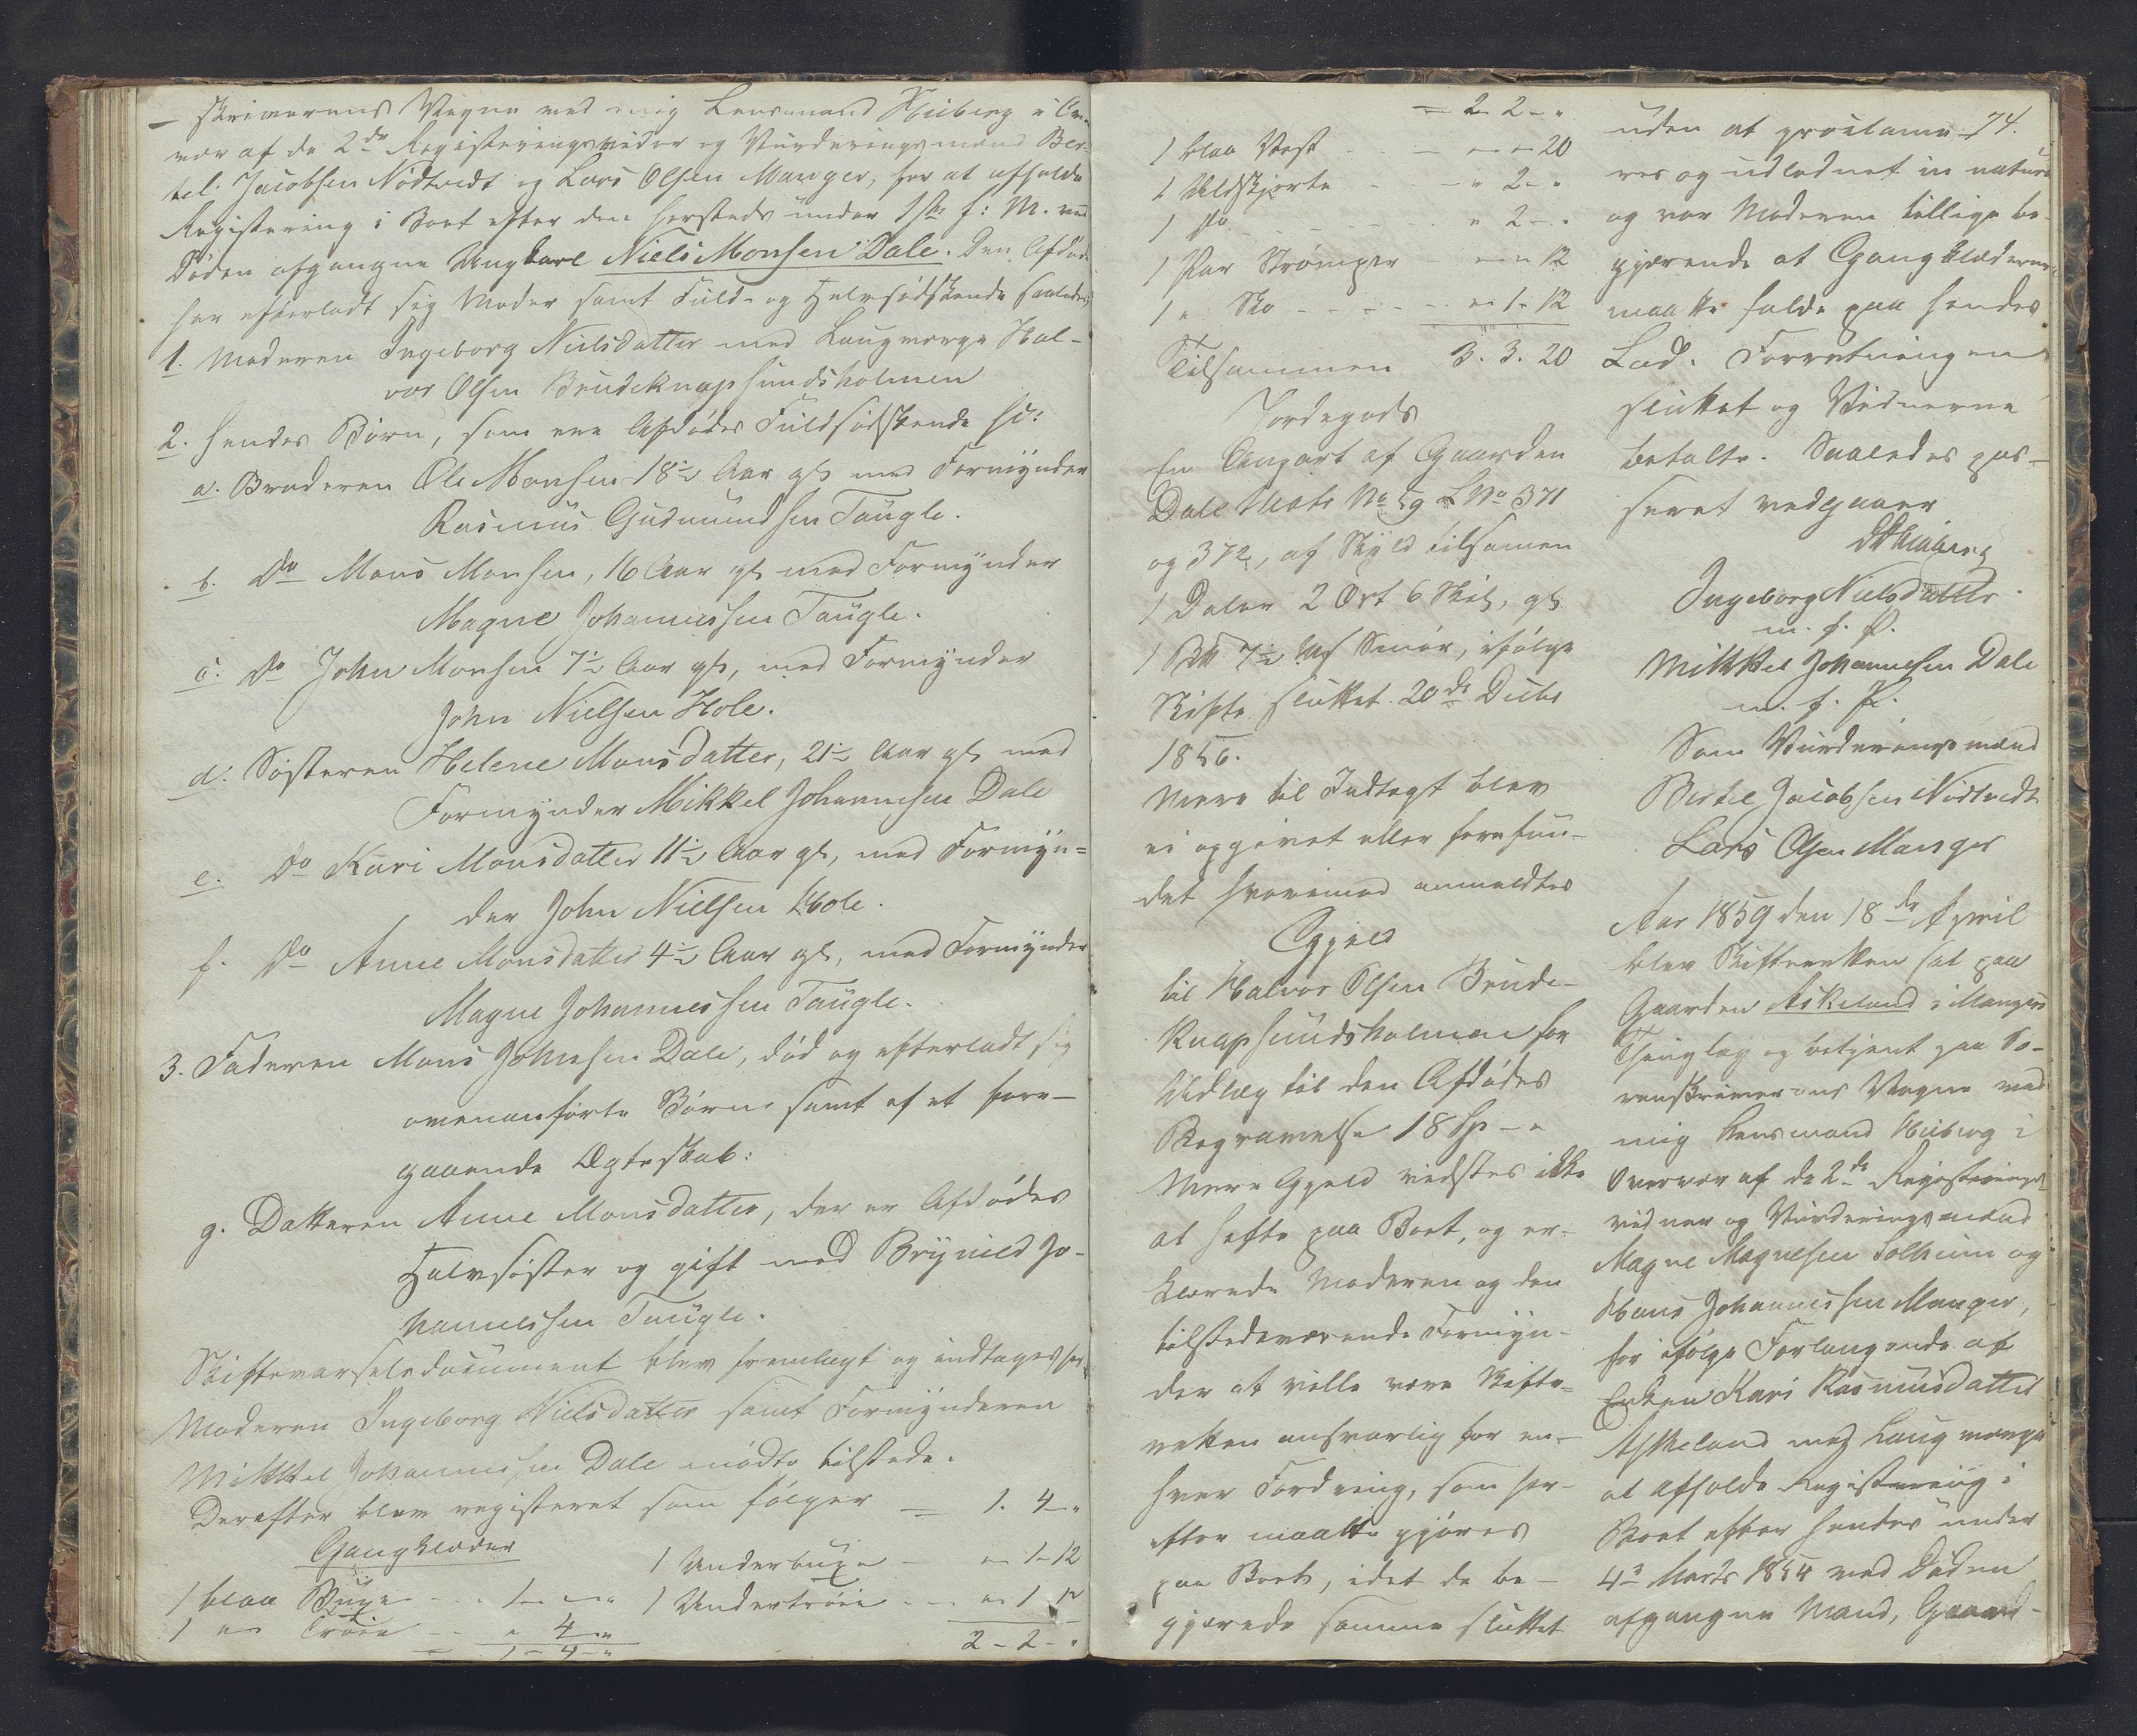 – skriverens Vegne ved mig Lensmand Hiiberg i Over-
vær af de 2de Registeringsvidner og Vurderingsmænd Ber-
tel Jacobsen Nödtvedt og Lars Olsen Manger, for at afholde
Registering i Boet efter den hersteds under 1ste f: M. ved
Döden afgangne Ungkarl Niels Monsen Dale. Den Afdöde
har efterladt sig Moder samt Fuld- og Halvsödskende saaledes,
1. Moderen Ingeborg Nielsdatter med Laugværge Hal-
vor Olsen Brudeknapsundsholmen
2. hendes Börn, som ere Afdödes Fuldsödskende sc:
a. Broderen Ole Monsen 18½ Aar gl. med Formynder
Rasmus Gudmundsen Taugle.
b. Do Mons Monsen, 16 Aar gl. med Formynder
Magne Johannessen Taugle.
c. Do John Monsen 7½ Aar gl., med Formynder
John Nielsen Hole.
d. Sösteren Helene Monsdatter, 21½ Aar gl. med
Formynder Mikkel Johannesen Dale
e. Do Kari Monsdatter 11½ Aar gl., med Formyn-
der John Nielsen Hole.
f. Do Anne Monsdatter 4½ Aar gl., med Formynder
Magne Johannessen Taugle.
3. Faderen Mons Johnsen Dale, död og efterladt sig
ovenanförte Börn samt af et fore-
gaaende Ægteskab:
g. Datteren Anne Monsdatter, der er Afdödes
Halvsöster og gift med Brynild Jo-
hannessen Taugle.
Skiftevarselsdocument blev fremlagt og indtages her,
Moderen Ingeborg Nielsdatter samt Formynderen
Mikkel Johannesen Dale mödte tilstede.
Derefter blev registeret som fölger – 1. 4 – "
Gangklæder
1 blaa Buxe - - 1 – " – "
1 " Tröie - - " 4 – "
– 1 – 4 – "
1 Underbuxe – " – 1 – 12
1 Undertröie - - " – 1 12
2 – 2 – "
= 2 2 – "
1 blaa Vest - - – " – " 20
1 Uldskjorte - - – " 2 – "
1 Do - - - - " 2 – "
1 Par Strömper – " – " 12
1 " Sko - - - - " 1 – 12
Tilsammen 3. 3. 20
Jordegods
En Anpart af Gaarden
Dale Matr No 59 L No 371
og 372, af Skyld tilsamen
1 Daler 2 Ort 6 Skil, gl.
1 Pd 7½ Mk Smör, ifölge
Skifte sluttet 20de Decbr
1856.
Mere til Indtægt blev
ei opgivet eller forefun-
det hvorimod anmeldtes
Gjæld
til Halvor Olsen Brude-
knapsundsholmen for
Udlæg til den Afdödes
Begravelse 18 Sp – "
Mere Gjæld vidstes ikke
at hefte paa Boet, og er-
klærede Moderen og den
tilstedeværende Formyn-
der at ville være Skifte-
retten ansvarlig for en-
hver Fordring, som her-
efter maatte gjöres
paa Boet, idet de be-
gjærede samme sluttet
74.
uden at proclame-
res og udlodnet in natura
og var Moderen tillige be-
gjærende at Gangklæderne
maatte falde paa hendes
Lod. Forretningen
sluttet og Vidnerne
betalte. Saaledes pas-
seret vedgaaer
Hiiberg
Ingeborg Nielsdatter.
m. f. P.
Mikkel Johannesen Dale
m. f. P.
Som Vurderingsmænd
Bertel Jacobsen Nödtvedt
Lars Olsen Manger
Aar 1859 den 18de April
blev Skifteretten sat paa
Gaarden Askeland i Mangers
Thinglag og betjent paa So-
renskriverens Vegne ved
mig Lensmand Hiiberg i
Overvær af de 2de Registerings-
vidner og Vurderingsmænd
Magne Magnesen Solheim og
Hans Johannessen Manger,
for ifölge Forlangende af
Enken Kari Rasmusdatter
Askeland med Laugværge
at afholde Registerering i
Boet efter hendes under
4de Marts 1854 ved Döden
afgangne Mand, Gaard-